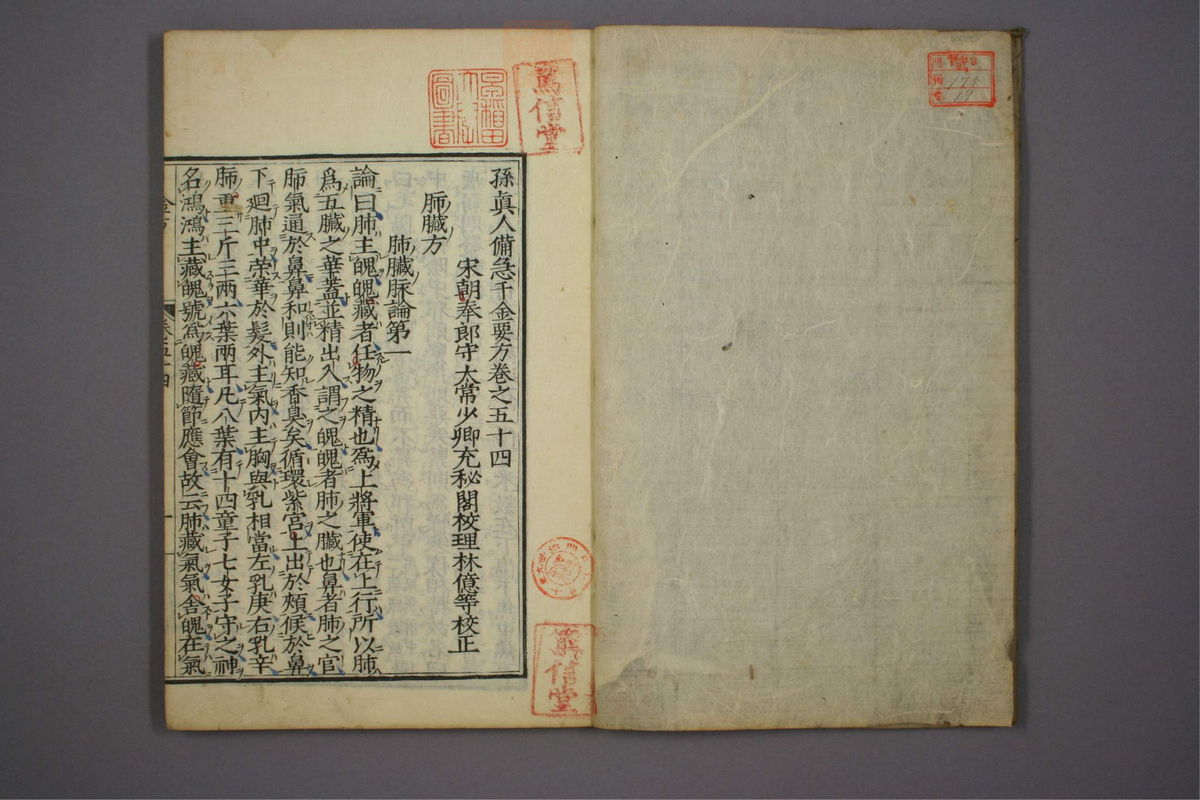 孫眞人備急千金要方卷之五十四
宋朝奉郎守太常少卿充秘閣校理林億等校正
肺臟方
肺臟脉論第一
論曰肺主魄魄藏者任物之精也爲上將軍使在上行所以肺
爲五臟之華蓋並精出入謂之魄魄者肺之臟也鼻者肺之官
肺氣通於鼻鼻和則能知香臭矣循環紫宮上出於頰候於鼻
下廻肺中榮華於髮外主氣內主胸與乳相當左乳庚右乳辛
肺重三斤三兩六葉兩耳凡八葉有十四童子七女子守之神
名鴻鴻主藏魄號爲魄藏隨節應會故云肺藏氣氣舍魄在氣
篤信堂
篤信堂
圖書
175
19